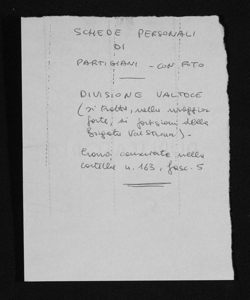 SCHEDE PERSONALI
DI
PARTIGIANI - CON RTO
DIVISIONE VALTOCE
(si tratta, nella maggior
parte, di partigiani della
brigata Valstrona).
conservate nella
cartella n. 163, fasc. 5